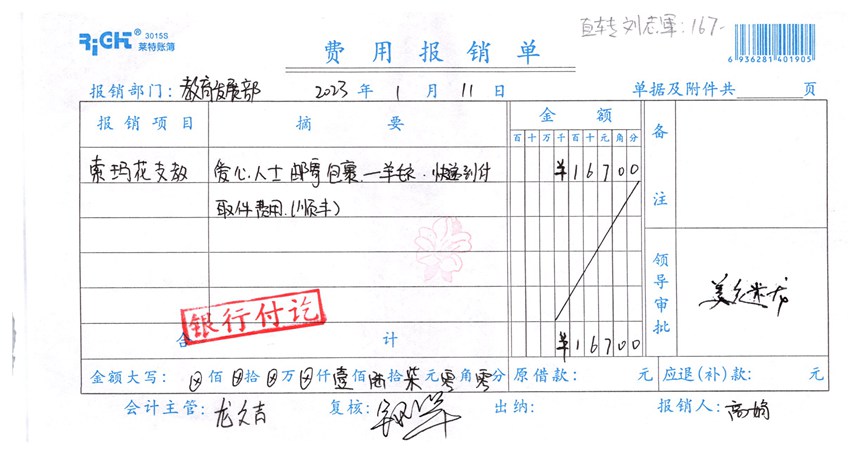 直转刘志軍:167-
RiGHT® 3015S
莱特账簿
费用报销单
6 936281 401905
报销部门: 教育发展部 2023年1月11日 单据及附件共 页
报销项目 摘要 金额 备注
百十万千百十元角分
索玛花支教 爱心人士邮寄包裹.一羊毛衣.快递到付 ¥16700
取件费用.(顺丰)
领导审批
银行付讫
合计 ¥16700
金额大写: ⊗佰⊗拾⊗万⊗仟壹佰陆拾柒元零角零分 原借款: 元 应退(补)款: 元
会计主管: 龙文吉 复核: 出纳: 报销人: 高娟